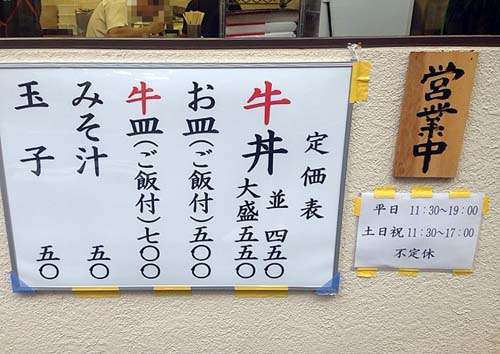 定価表
牛丼 並 四五〇
大盛 五五〇
お皿(ご飯付)五〇〇
牛皿(ご飯付)七〇〇
みそ汁 五〇
玉子 五〇
営業中
平日 11:30~19:00
土日祝 11:30~17:00
不定休